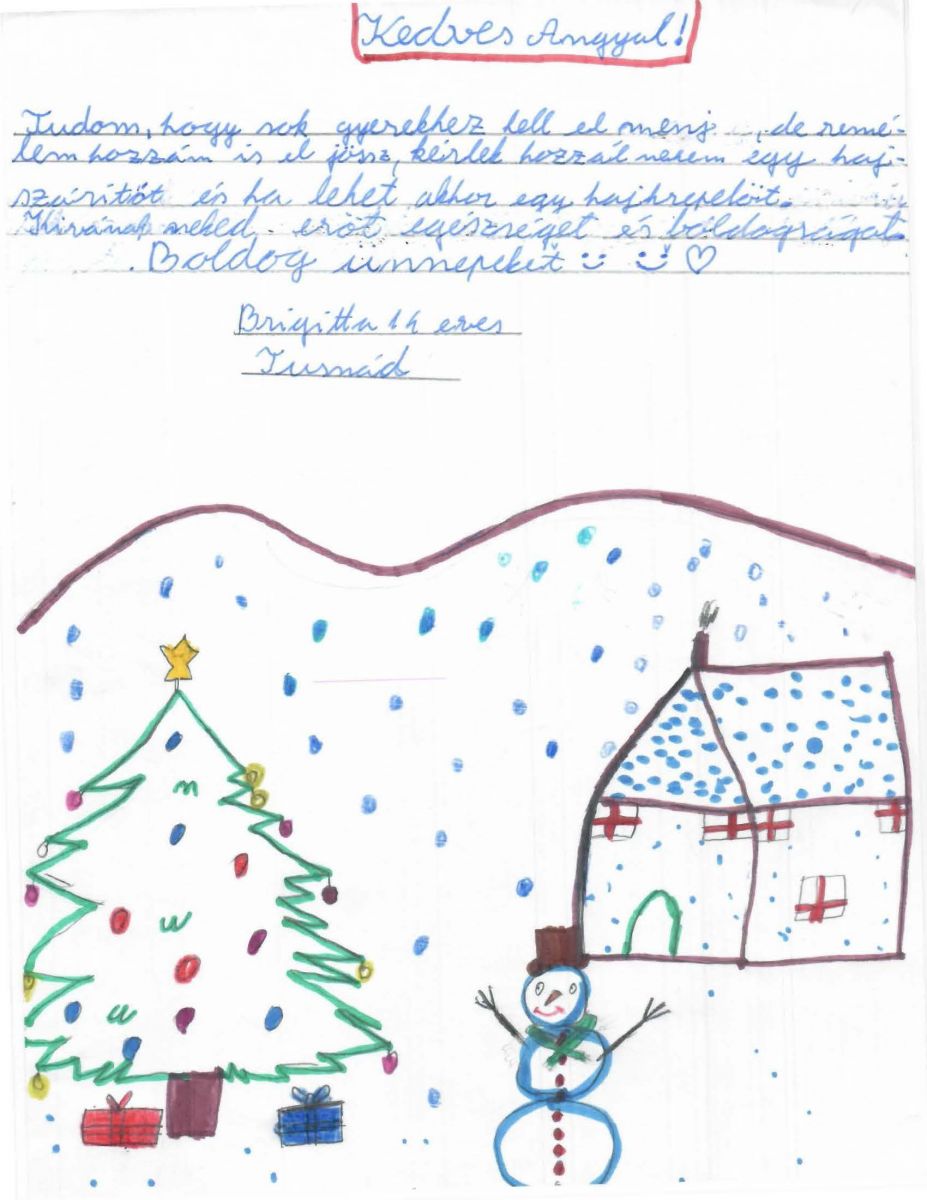 Kedves Angyal!
Tudom, hogy sok gyerekhez kell el menj, de remé-
lem hozzám is el jössz, kérlek hozzál nekem egy haj-
száritót és ha lehet akkor egy hajkrepelöt.
Kivánok neked eröt egészséget és boldogságot.
Boldog ünnepeket :) :) ♡
Brigitta 14 eves
Tusnád